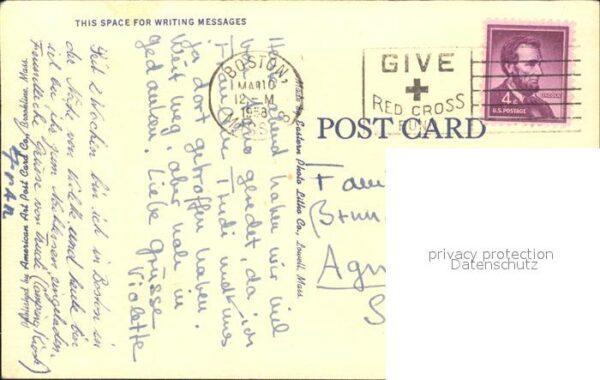 THIS SPACE FOR WRITING MESSAGES
Seit 2 Wochen bin ich in Boston in
der Nähe von Violette und heute bin
ich bei ihr zum Nachtessen eingeladen.
Freundliche Grüsse von
Heute Abend haben wir viel
geredet, da ich
Trudi und uns
ja dort getroffen haben.
Weit weg, aber nah in
Gedanken. Liebe Grüsse
Violette
Published by American Art Post Card Co., Brookline, Mass.
Made by Eastern Photo Litho Co., Lowell, Mass.
BOSTON,
MAR 10
12 M
1958
MASS
GIVE
RED CROSS
FUND
4¢
LINCOLN
U.S. POSTAGE
POST CARD
Fam
Brun
Agn
S
privacy protection
Datenschutz